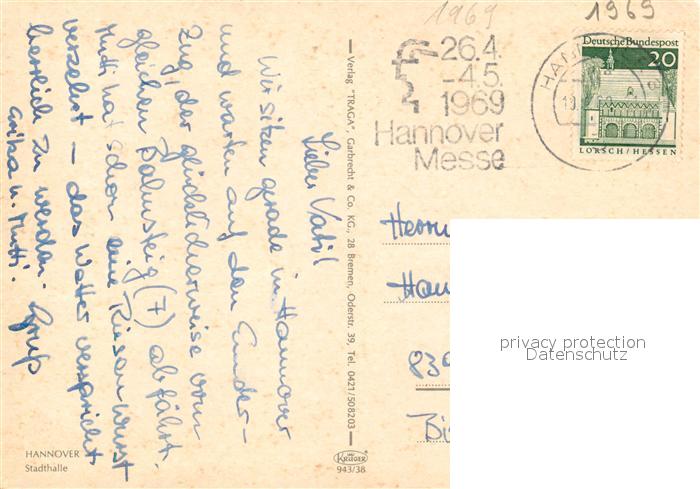 1969
1969
26.4.
-4.5.
1969
Hannover
Messe
Deutsche Bundespost
20
LORSCH/HESSEN
Lieber Vati!
Wir sitzen gerade in Hannover
und warten auf den Emder-
Zug, der glücklicherweise vom
gleichen Bahnsteig (7) abfährt.
Mutti hat schon eine Riesenwurst
verzehrt – das Wetter verspricht
herrlich zu werden. Gruß
u. Mutti.
Verlag "TRAGA", Garbrecht & Co. KG., 28 Bremen, Oderstr. 39, Tel. 0421/508203
Herrn
privacy protection
Datenschutz
HANNOVER
Stadthalle
KRÜGER
943/38